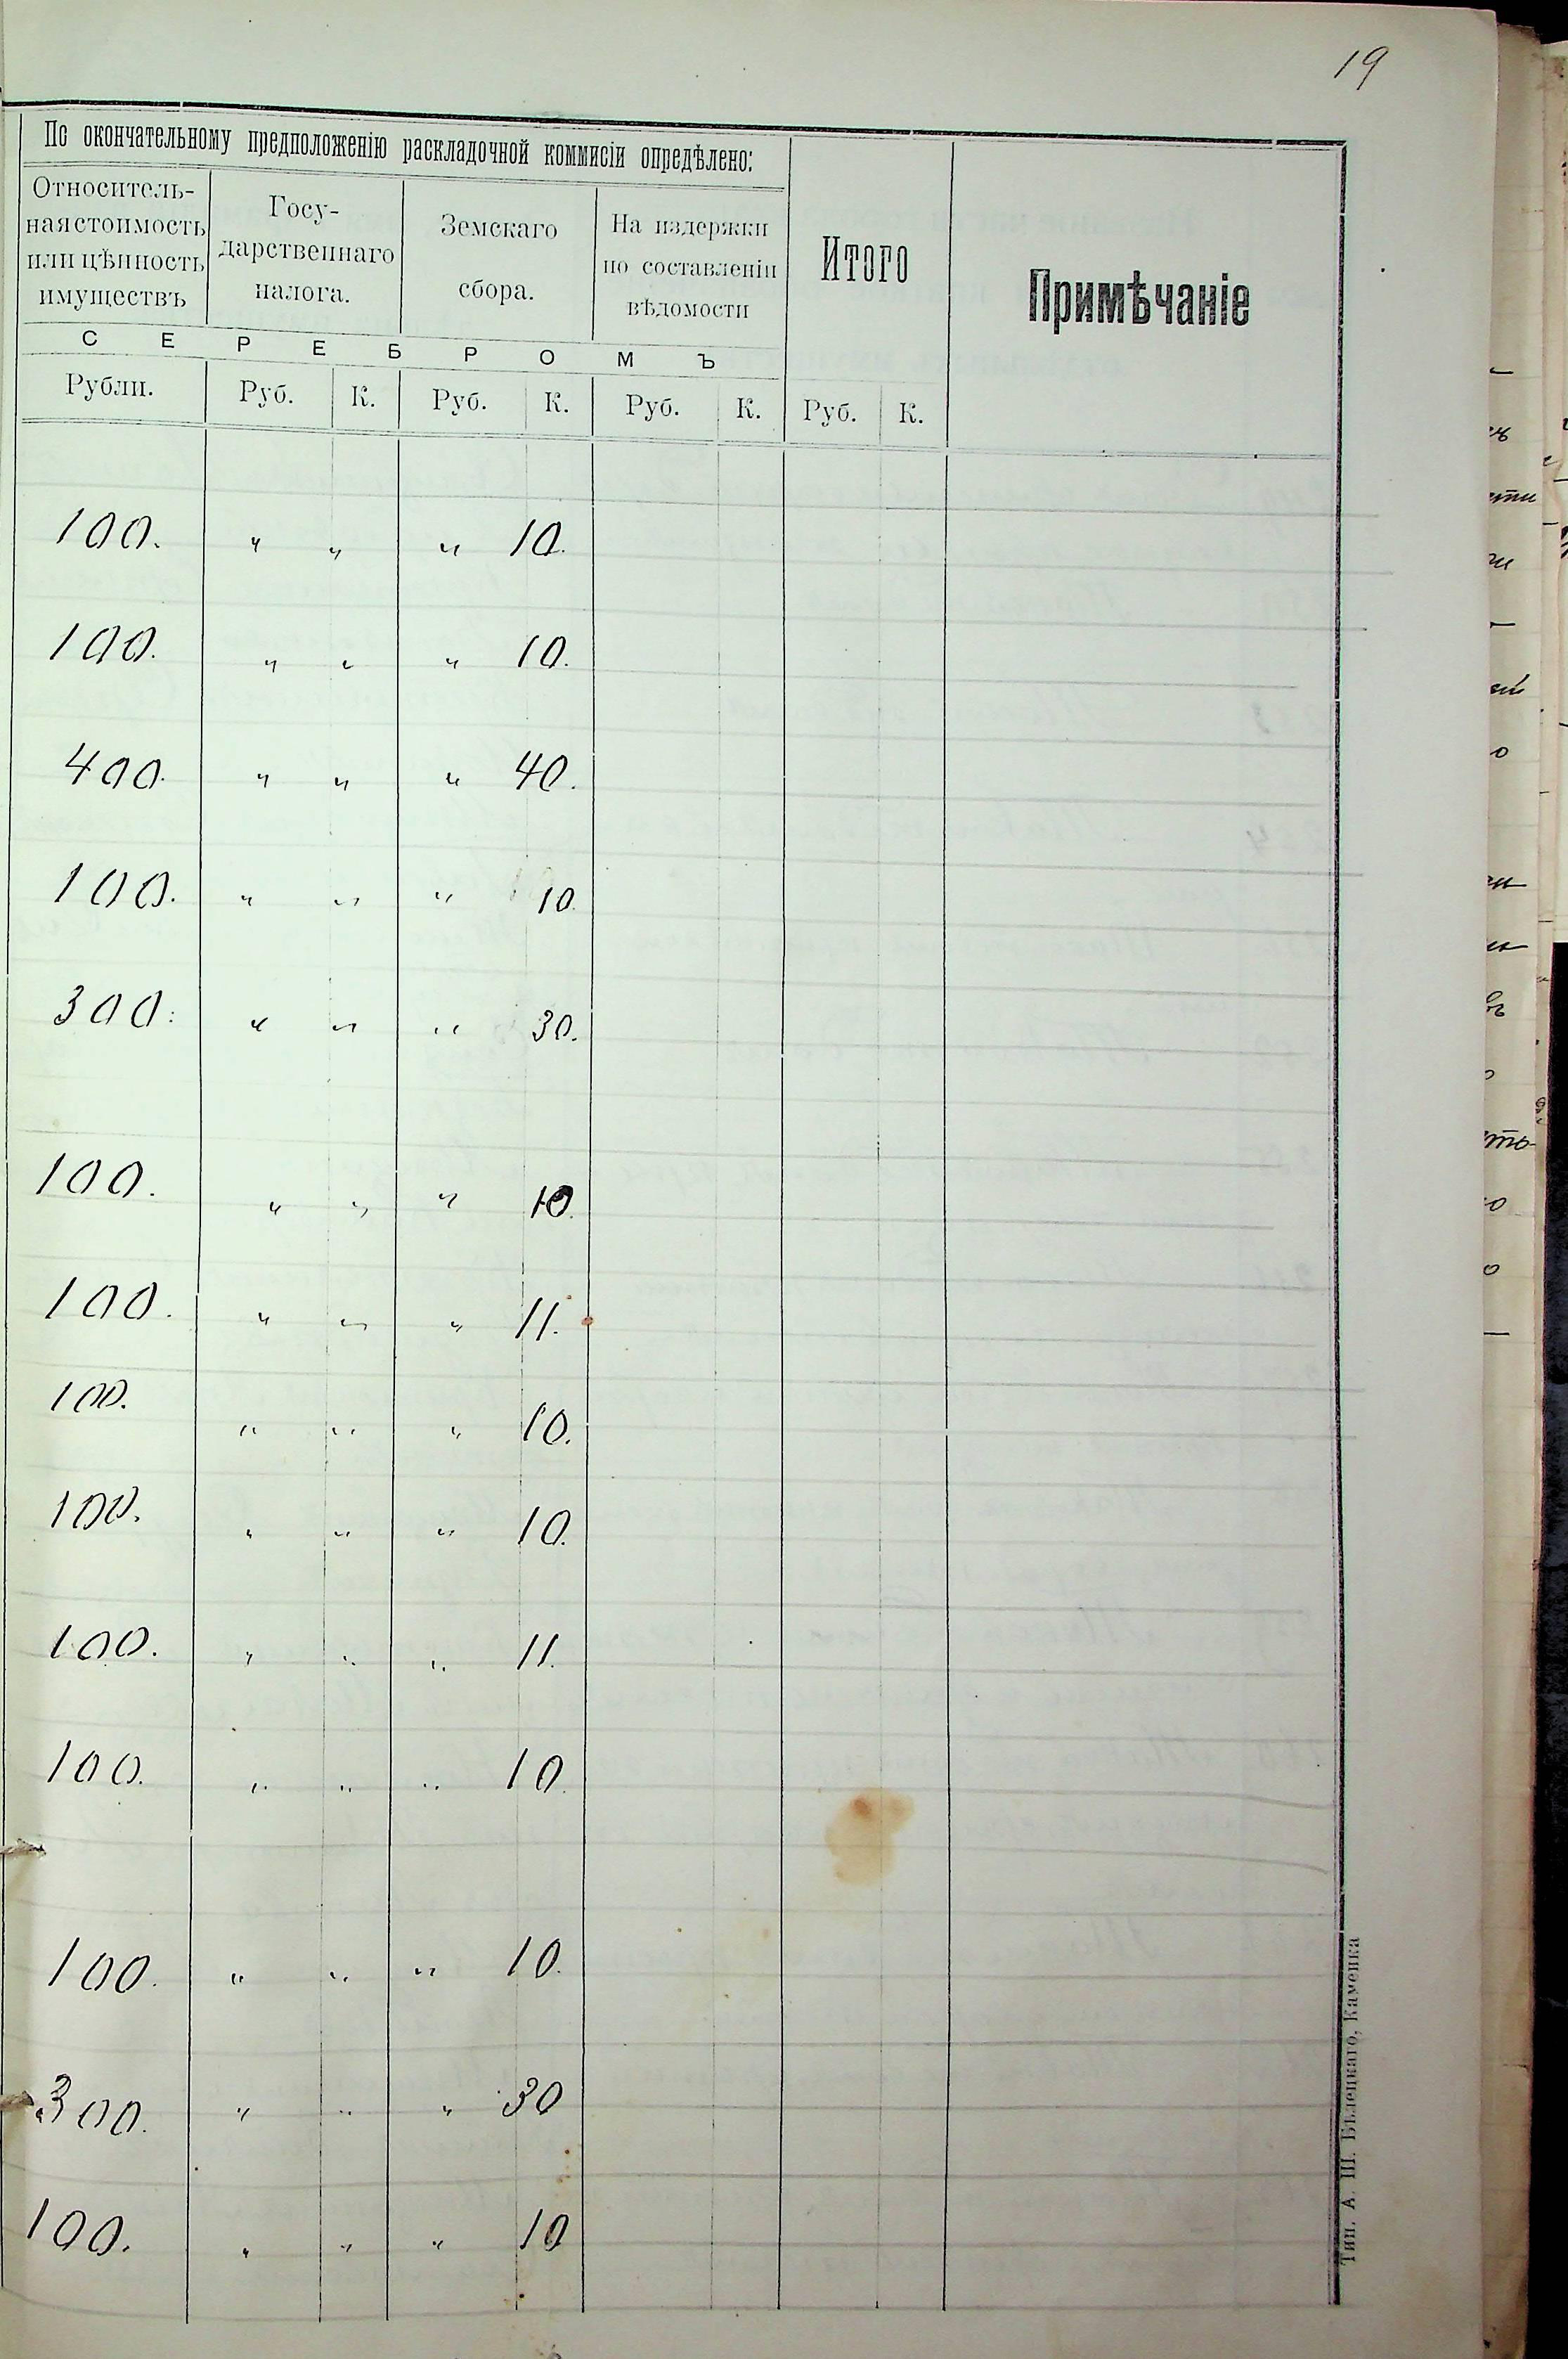 19
По окончательному предположенію раскладочной коммисіи опредѣлено:
Относитель-
ная стоимость
или цѣнность
имуществъ
Госу-
дарственнаго
налога.
Земскаго
сбора.
На издержки
по составленіи
вѣдомости
Итого
Примѣчаніе
СЕРЕБРОМЪ
Рубли. Руб. К. Руб. К. Руб. К. Руб. К.
100. " " " 10.
100. " " " 10.
400. " " " 40.
100. " " " 10.
300. " " " 30.
100. " " " 10.
100. " " " 11.
100. " " " 10.
100. " " " 10.
100. " " " 11.
100. " " " 10.
100. " " " 10.
300. " " " 30
100. " " " 10
Тип. А. Ш. Бѣлецкаго, Каменка